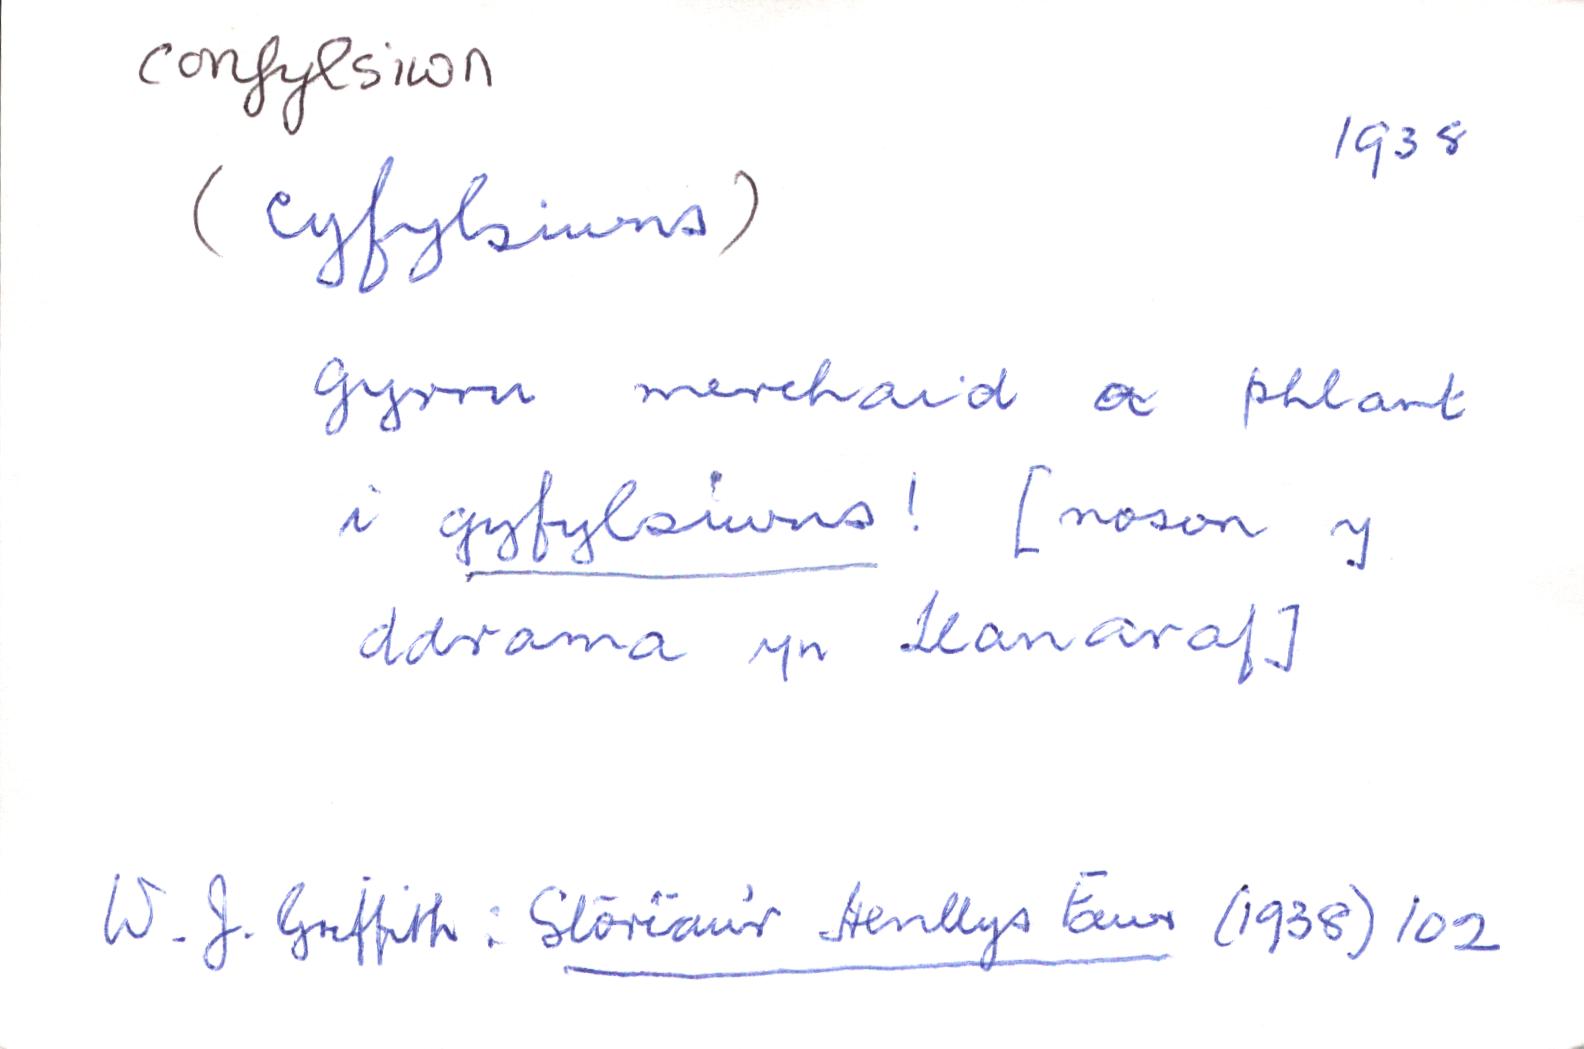 confylsiwn
1938
(cyfylsiwns)
Gyrru merchaid a phlant
i gyfylsiwns! [noson y
ddrama yn Llanaraf]
W. J. Griffith: Storïau'r Henllys Fawr (1938) 102